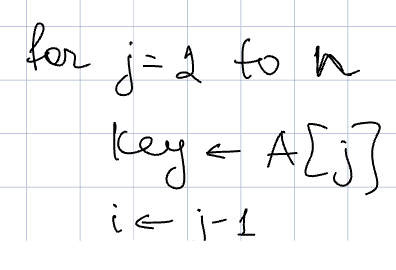 for j=2 to n
key ← A[j]
i ← j-1